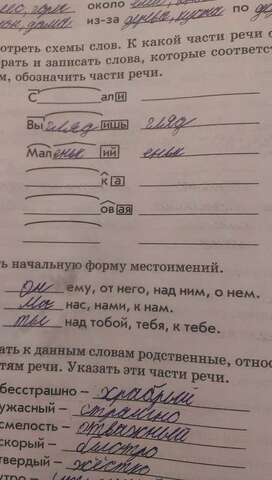 около
из-за по д
отреть схемы слов. К какой части речи о
брать и записать слова, которые соответст
м, обозначить части речи.
С али
Выглядишь гляд
Маленький еньк
ка
овая
ть начальную форму местоимений.
он ему, от него, над ним, о нем.
мы нас, нами, к нам.
ты над тобой, тебя, к тебе.
ать к данным словам родственные, относ
тям речи. Указать эти части речи.
бесстрашно – храбрый
ужасный – страшно
смелость – отважный
скорый – быстро
твердый – жёстко
утро –